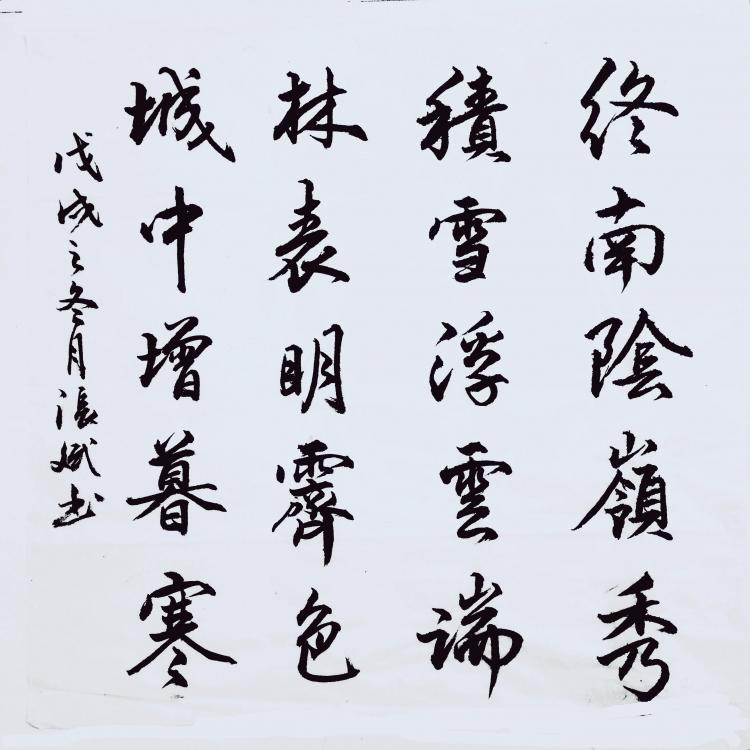 終南陰嶺秀
積雪浮雲端
林表明霽色
城中增暮寒
戊戌之冬月張斌書